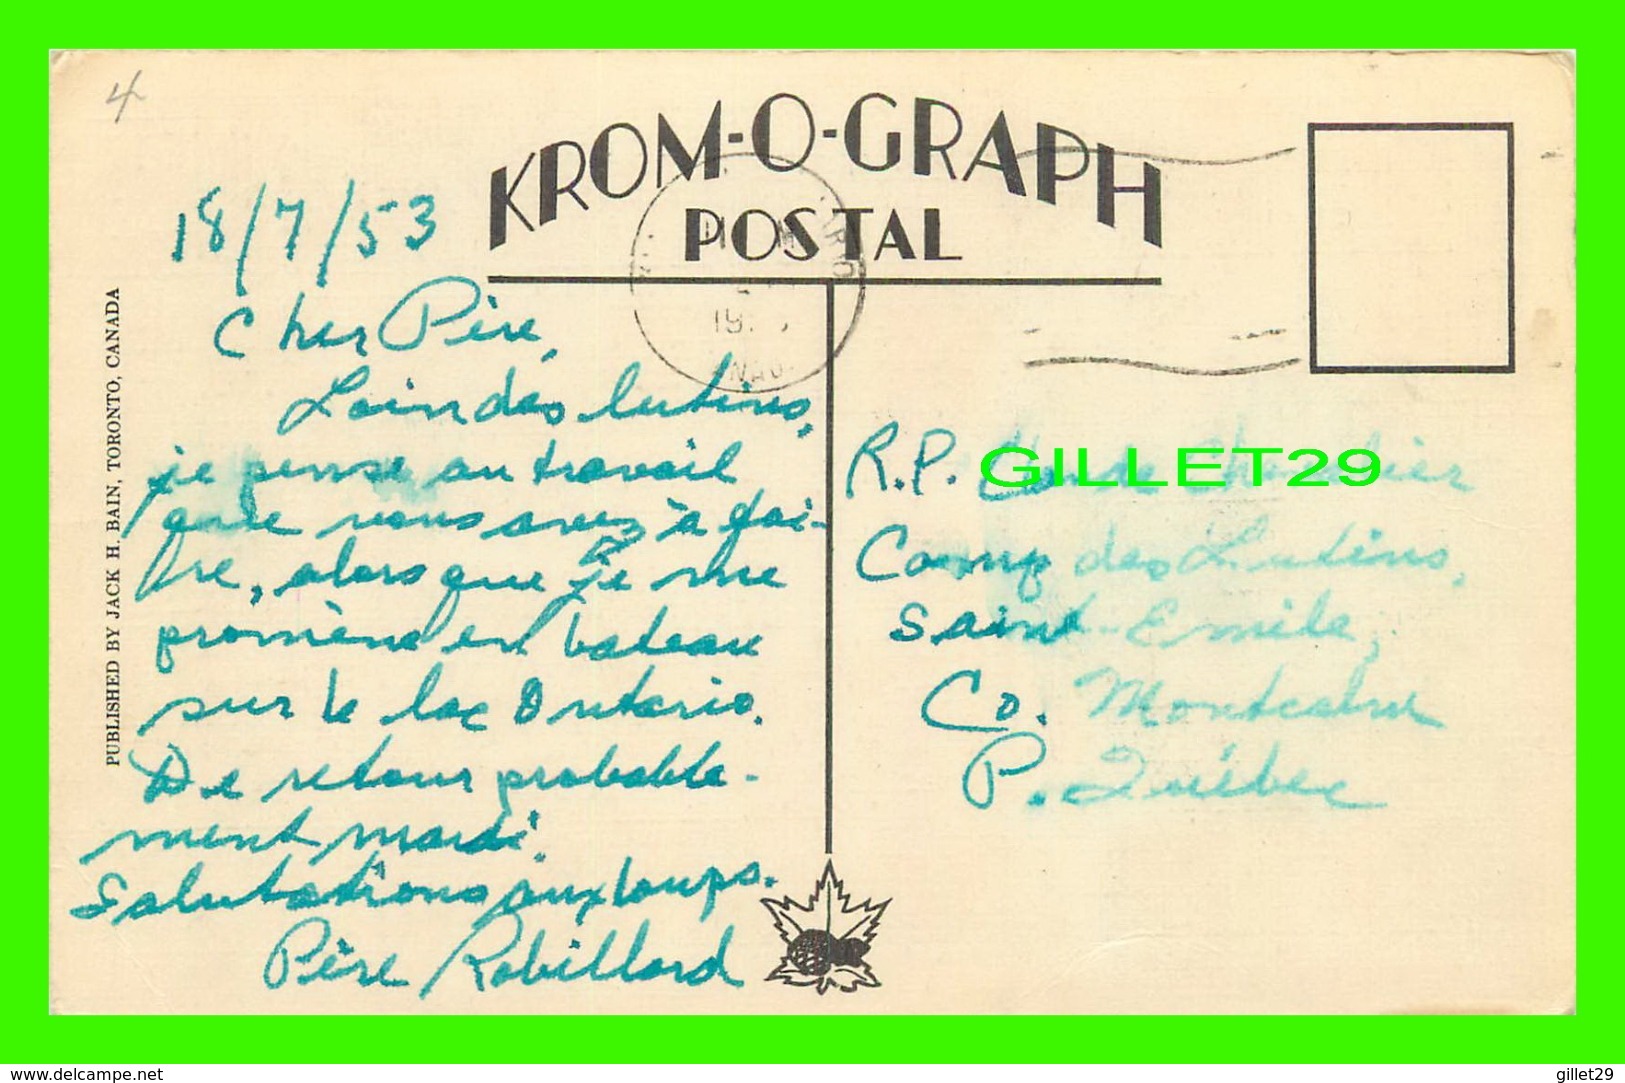 4
KROM-O-GRAPH
POSTAL
18/7/53
Cher Père,
Loin des lutins,
je pense au travail
que vous avez à fai-
re, alors que je me
promène en bateau
sur le lac Ontario.
De retour probable-
ment mardi.
Salutations aux loups.
Père Robillard
PUBLISHED BY JACK H. BAIN, TORONTO, CANADA
GILLET29
R.P. Chevalier
Camp des Lutins,
Saint-Emile,
Co. Montcalm
P. Québec
www.delcampe.net
gillet29